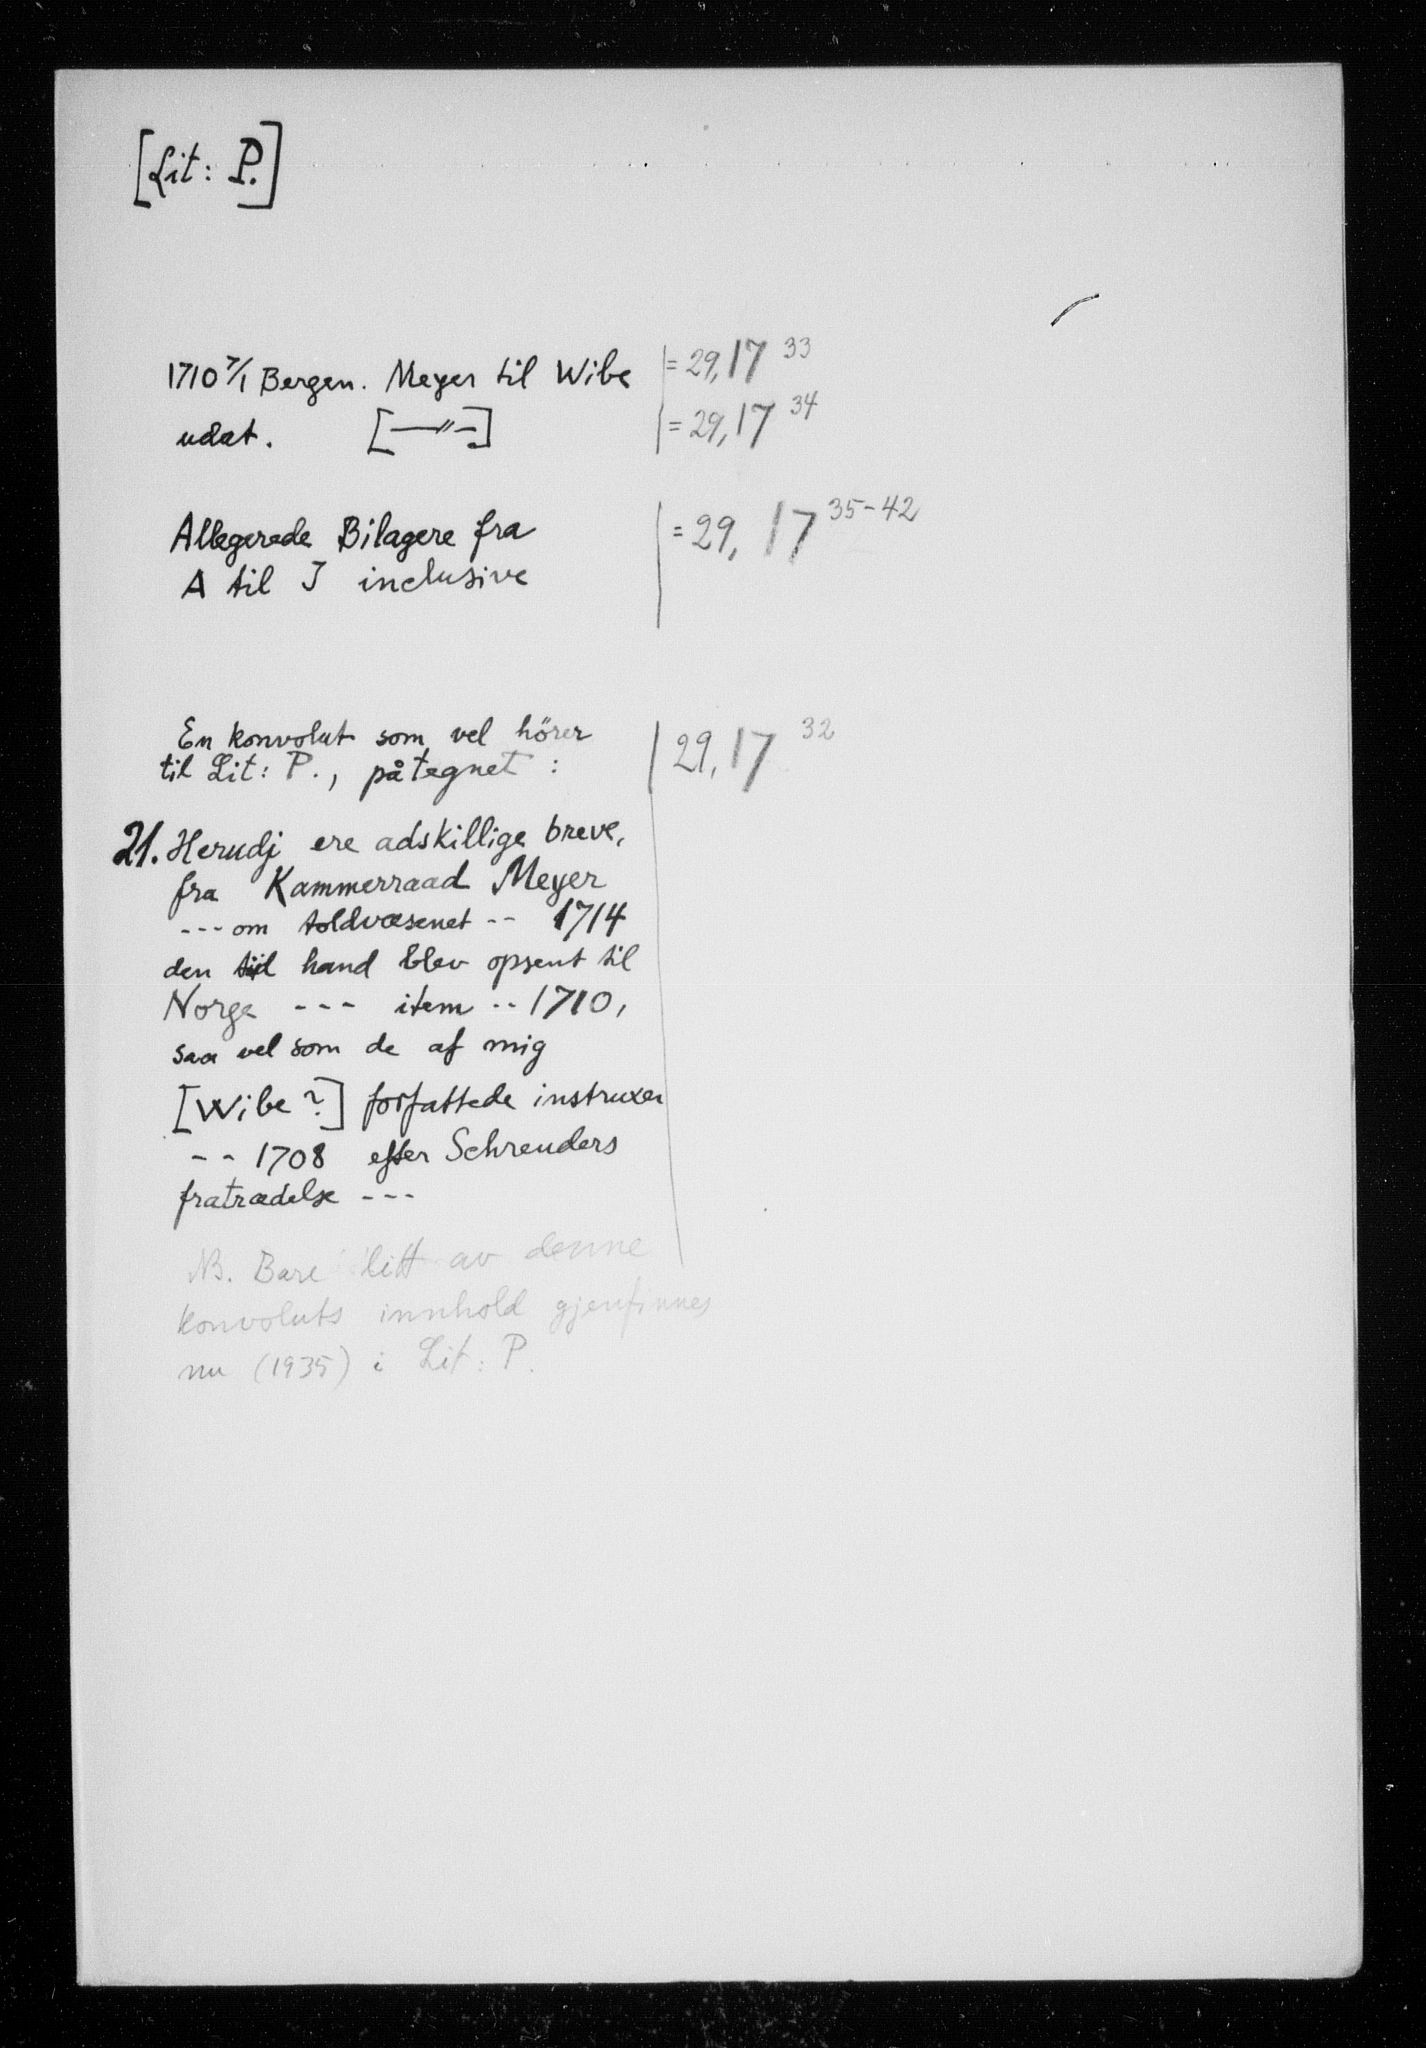 [Lit: P.]
1710 7/1 Bergen. Meyer til Wibe = 29,17 33
udat. [—"—] = 29,17 34
Allegerede Bilagere fra = 29, 17 35-42
A til I inclusive
En konvolut som vel hörer 29,17 32
til Lit: P., påtegnet :
21. Herudj ere adskillige breve,
fra Kammerraad Meyer
--- om toldvæsenet -- 1714
den tid hand blev opsent til
Norge --- item -- 1710,
saa vel som de af mig
[Wibe?] forfattede instruxer
-- 1708 efter Schreuders
fratrædelse ---
NB. Bare litt av denne
konvoluts innhold gjenfinnes
nu (1935) i Lit: P.